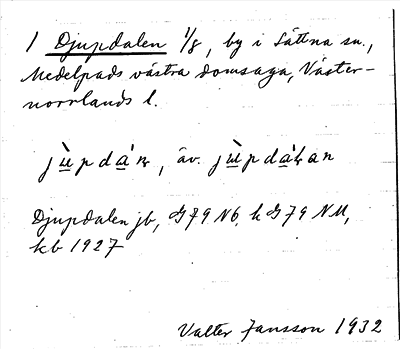 1 Djupdalen 1/8, by i Sättna sn.,
Medelpads västra domsaga, Väster-
norrlands l.
jùpdáṇ, äv. jùpdáɫan
Djupdalen jb, G79 NÖ, k G79 NU,
kb 1927
Valter Jansson 1932